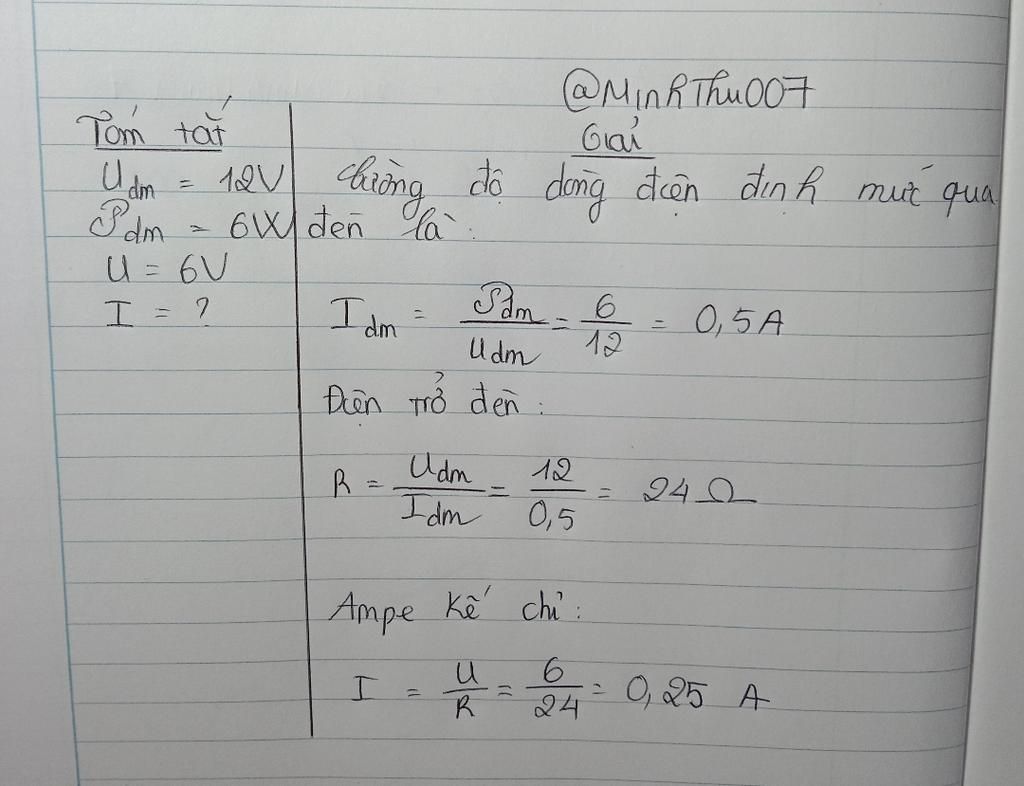 @MinhThu007
Tóm tắt
Uđm = 12V
𝒫đm = 6W
U = 6V
I = ?
Giải
Cường độ dòng điện định mức qua
đèn là:
Iđm = 𝒫đm / Uđm = 6 / 12 = 0,5A
Điện trở đèn:
R = Uđm / Iđm = 12 / 0,5 = 24 Ω
Ampe kế chỉ:
I = U / R = 6 / 24 = 0,25 A